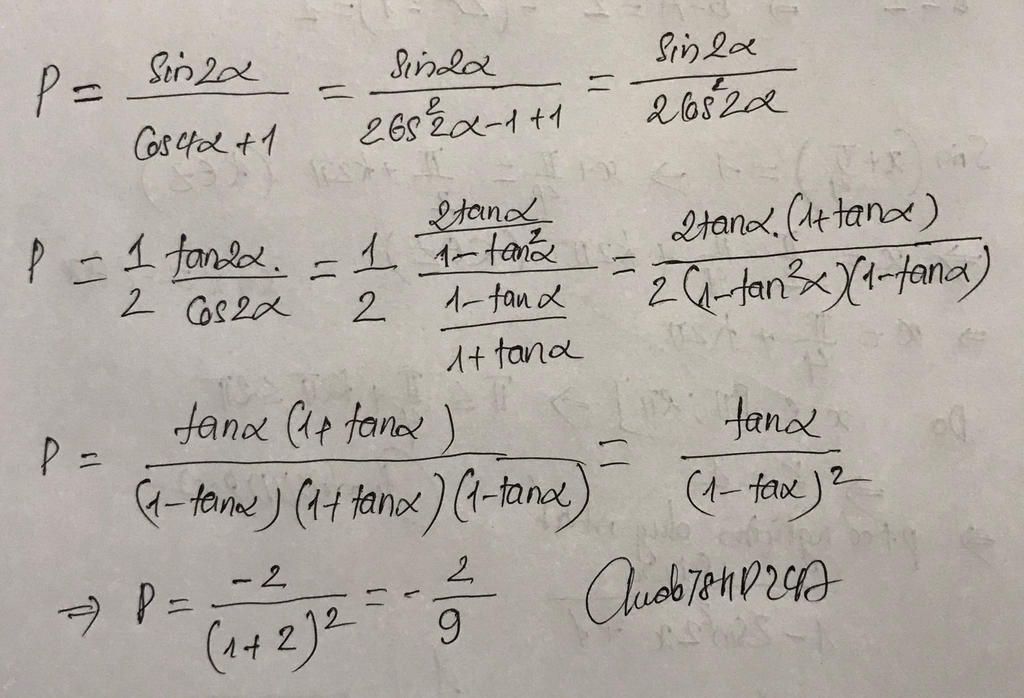 P = sin2α / (cos4α + 1) = sin2α / (2cos²2α - 1 + 1) = sin2α / (2cos²2α)
P = 1/2 tan2α. / cos2α = 1/2 (2tanα / (1 - tan²α)) / ((1 - tanα) / (1 + tanα)) = 2tanα.(1+tanα) / (2(1-tan²α)(1-tanα))
P = tanα(1+tanα) / ((1-tanα)(1+tanα)(1-tanα)) = tanα / (1-taα)²
⇒ P = -2 / (1+2)² = - 2/9